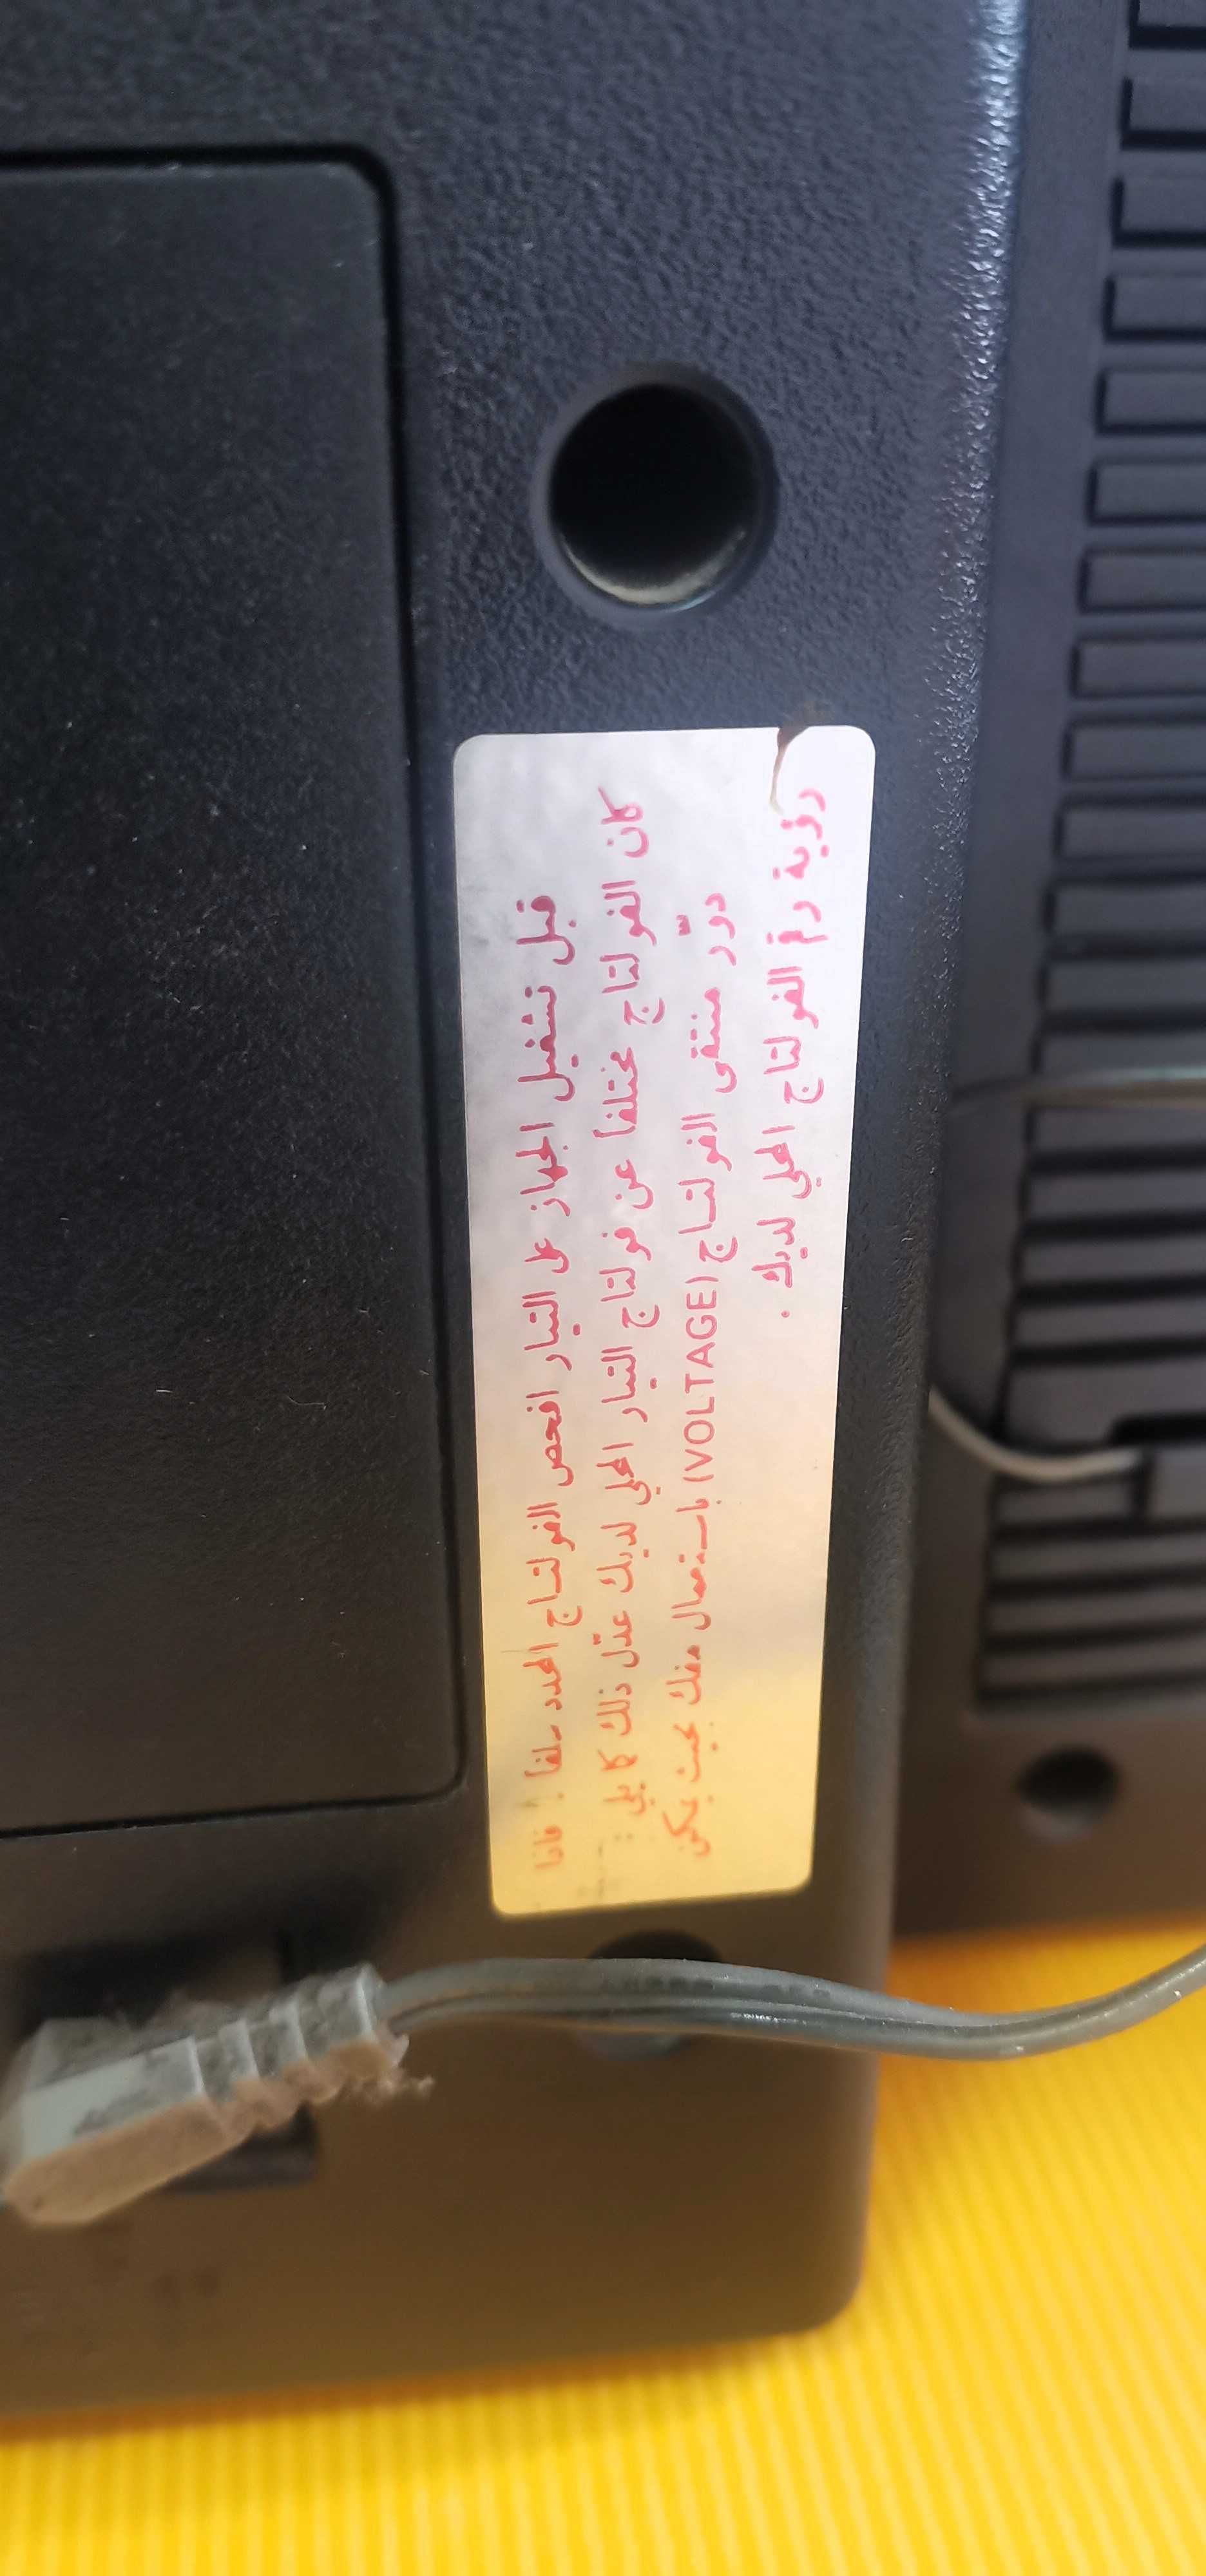 قبل تشغيل الجهاز على التيار افحص الفولتاج المحدد سلفاً ! فاذا
كان الفولتاج مختلفاً عن فولتاج التيار المحلي لديك عدّل ذلك كما يلي :
دوّر منتقى الفولتاج (VOLTAGE) باستعمال مفك بحيث يمكن
رؤية رقم الفولتاج المحلي لديك .